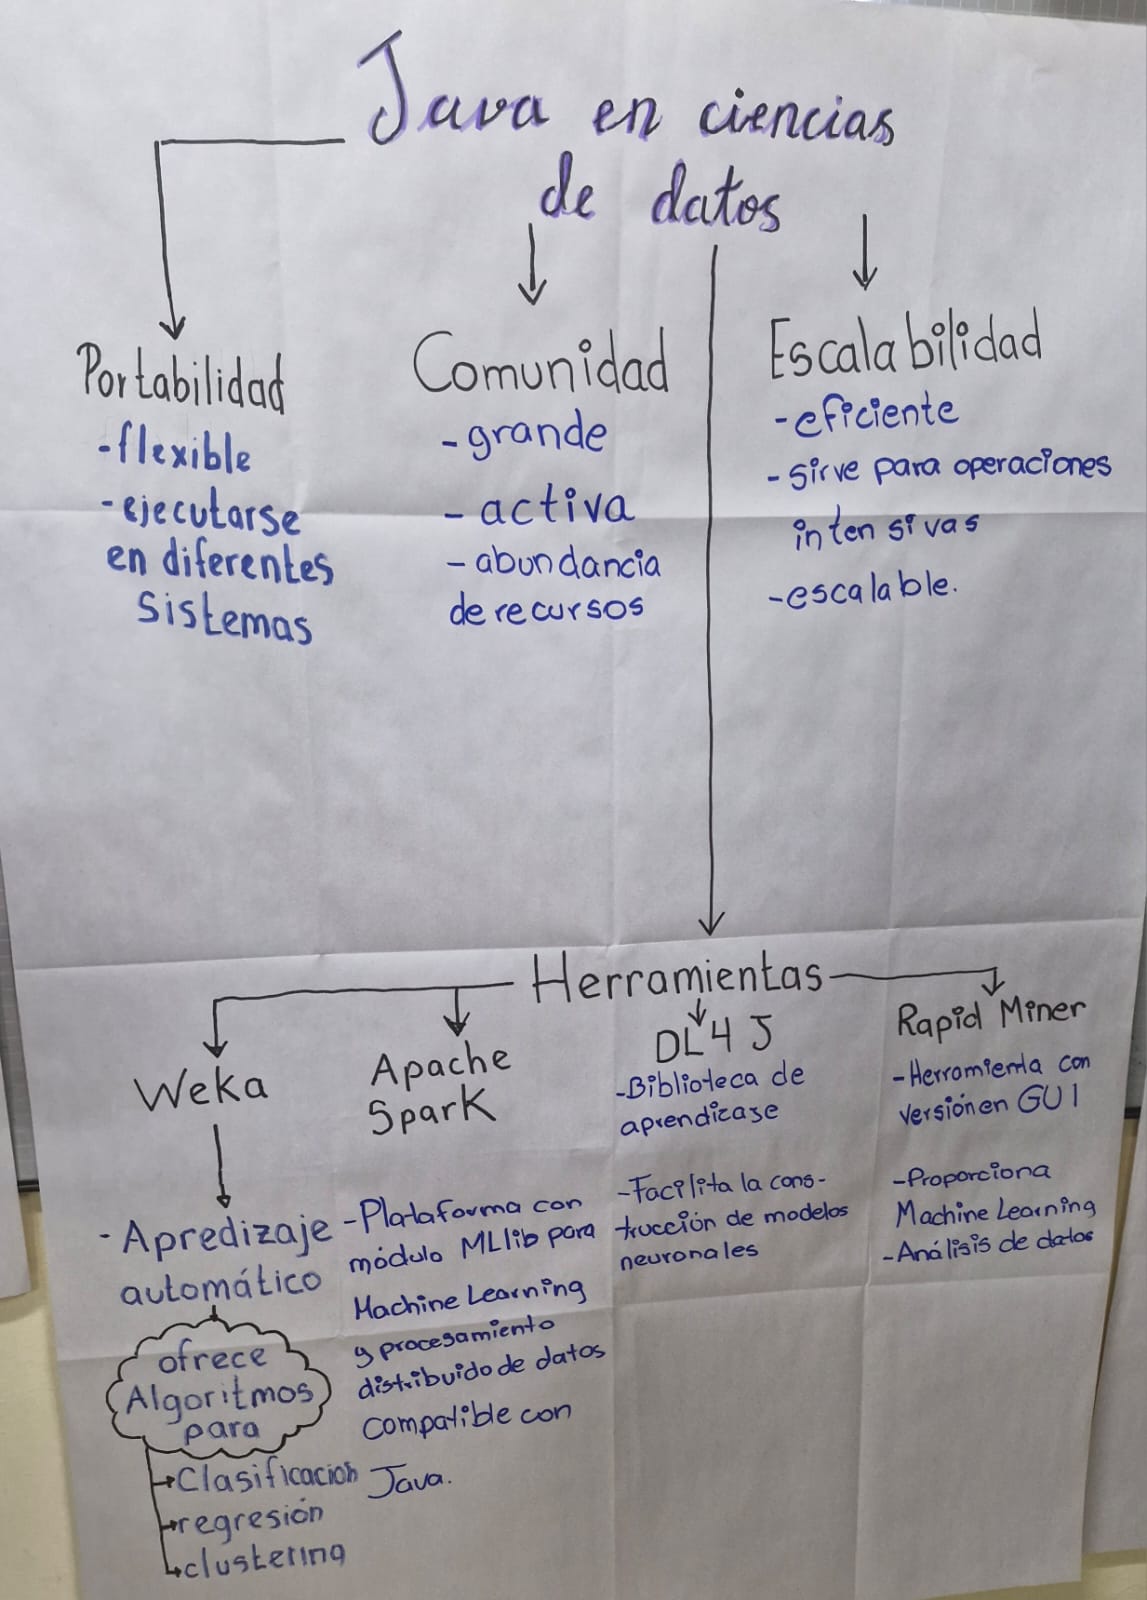 Java en ciencias
de datos
Portabilidad
-flexible
-ejecutarse
en diferentes
sistemas
Comunidad
-grande
-activa
-abundancia
de recursos
Escalabilidad
-eficiente
-sirve para operaciones
intensivas
-escalable.
Herramientas
Weka
- Apredizaje
automático
ofrece
Algoritmos
para
Clasificación
regresión
clustering
Apache
Spark
-Plataforma con
módulo MLlib para
Machine Learning
y procesamiento
distribuido de datos
compatible con
Java.
DL4J
-Biblioteca de
aprendizaje
-Facilita la cons-
trucción de modelos
neuronales
Rapid Miner
-Herramienta con
versión en GUI
-Proporciona
Machine Learning
-Análisis de datos